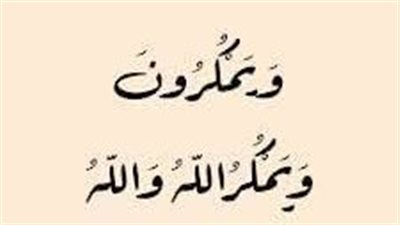 وَيَمْكُرُونَ
وَيَمْكُرُ اللّهُ وَاللّهُ